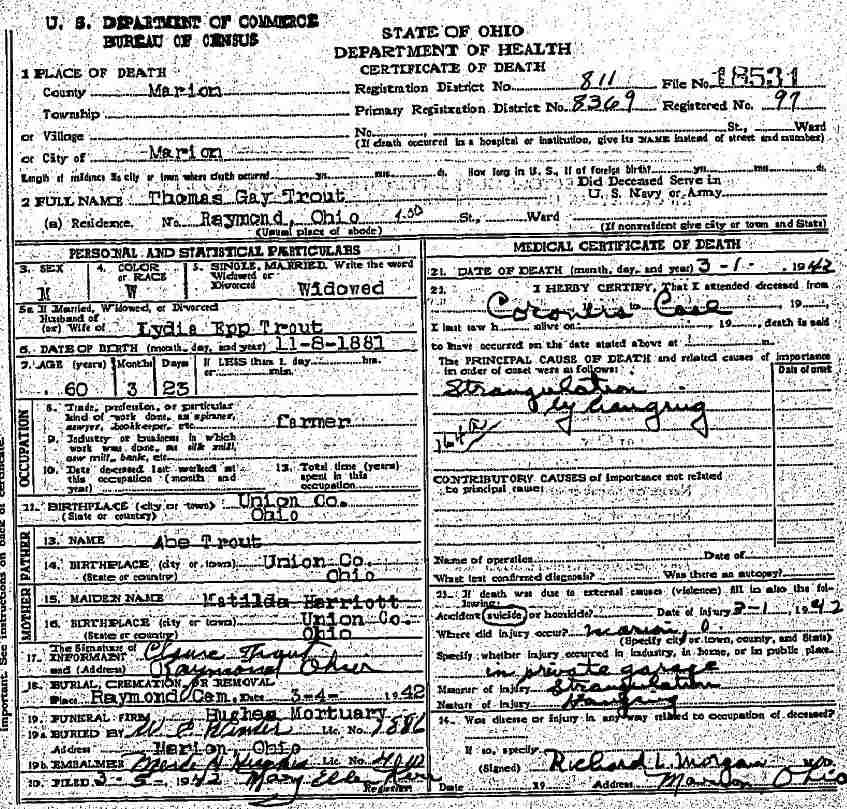 U. S. DEPARTMENT OF COMMERCE
BUREAU OF CENSUS
STATE OF OHIO
DEPARTMENT OF HEALTH
CERTIFICATE OF DEATH
1 PLACE OF DEATH
County Marion
Registration District No. 811 File No. 18531
Township
Primary Registration District No. 8369 Registered No. 97
or Village
No. St., Ward
(If death occurred in a hospital or institution, give its NAME instead of street and number)
or City of Marion
Length of residence in city or town where death occurred yrs. mos. ds. How long in U. S., if of foreign birth? yrs. mos. ds.
2 FULL NAME Thomas Gay Trout
Did Deceased Serve in
U. S. Navy or Army
(a) Residence. No. Raymond, Ohio St., Ward
(Usual place of abode) (If nonresident give city or town and State)
PERSONAL AND STATISTICAL PARTICULARS
3. SEX M
4. COLOR or RACE W
5. SINGLE, MARRIED, Write the word
Widowed or
Divorced Widowed
5a If Married, Widowed, or Divorced
Husband of
(or) Wife of Lydia Epp Trout
6. DATE OF BIRTH (month, day, and year) 11-8-1881
7. AGE (years) Months Days If LESS than 1 day hrs.
or min.
60 3 23
OCCUPATION
8. Trade, profession, or particular
kind of work done, as spinner,
sawyer, bookkeeper, etc. farmer
9. Industry or business in which
work was done, as silk mill,
saw mill, bank, etc.
10. Date deceased last worked at
this occupation (month and
year)
Total time (years)
spent in this
occupation
BIRTHPLACE (city or town) Union Co.
(State or country) Ohio
FATHER
13. NAME Abe Trout
14. BIRTHPLACE (city or town) Union Co.
(State or country) Ohio
MOTHER
15. MAIDEN NAME Matilda Harriott
16. BIRTHPLACE (city or town) Union Co.
(State or country) Ohio
17. The Signature of
INFORMANT Trout
and (Address) Raymond Ohio
18. BURIAL, CREMATION, OR REMOVAL
Place Raymond Cem. Date 3-4- 1942
19. FUNERAL FIRM Hughes Mortuary
19a. BURIED BY Lic. No. 1886
Address Marion, Ohio
19b. EMBALMER Lic. No.
20. FILED 3-5- 1942 Mary Ellen
Registrar
MEDICAL CERTIFICATE OF DEATH
21. DATE OF DEATH (month, day, and year) 3-1- 1942
I HEREBY CERTIFY, That I attended deceased from
Coroners Case 19
I last saw h alive on 19 , death is said
to have occurred on the date stated above at m.
The PRINCIPAL CAUSE OF DEATH and related causes of importance
in order of onset were as follows: Date of onset
Strangulation
by hanging
CONTRIBUTORY CAUSES of importance not related
to principal cause:
Name of operation Date of
What test confirmed diagnosis? Was there an autopsy?
23. If death was due to external causes (violence) fill in also the following:
Accident, suicide, or homicide? Date of injury 3-1 1942
Where did injury occur? Marion, O.
(Specify city or town, county, and State)
Specify whether injury occurred in industry, in home, or in public place.
in private garage
Manner of injury Strangulation
Nature of injury Hanging
24. Was disease or injury in any way related to occupation of deceased?
If so, specify
(Signed) Richard L. Morgan MD
Date 19 Address Marion Ohio
Important. See instructions on back of certificate.